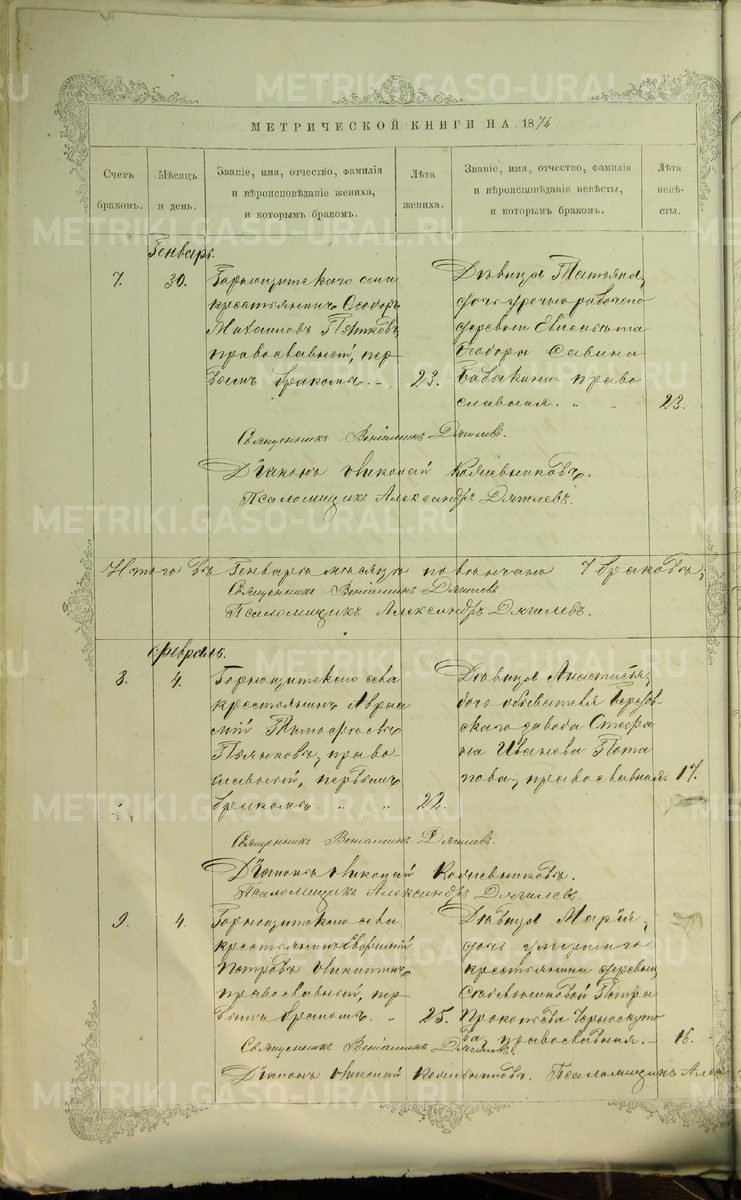 МЕТРИЧЕСКОЙ КНИГИ НА 1876
Счетъ браковъ.
Мѣсяцъ и день.
Званіе, имя, отчество, фамилія
и вѣроисповѣданіе жениха,
и которымъ бракомъ.
Лѣта жениха.
Званіе, имя, отчество, фамилія
и вѣроисповѣданіе невѣсты,
и которымъ бракомъ.
Лѣта невѣ-
сты.
Генварь.
7. 30.
крестьянинъ Ѳеодоръ
Михаиловъ
православный, пер
вымъ бракомъ. 23.
Дѣвица Татьяна,
дочь урочнорабочаго
деревни
Ѳеодора Савина
Бабыкина право
славная. 23.
Священникъ Веніаминъ Дягилевъ.
Діаконъ Николай Кожевниковъ.
Псаломщикъ Александръ Дягилевъ.
Итого въ Генварѣ мѣсяцѣ повѣнчано 7 браковъ,
Священникъ Веніаминъ Дягилевъ.
Псаломщикъ Александръ Дягилевъ.
Февраль.
8. 4.
села
крестьянинъ Авраа
мій Тимоѳеевъ
право-
славный, первымъ
бракомъ. 22.
Дѣвица Анастасья,
дочь обывателя Березов-
скаго завода Стефа
на Иванова Пота
пова, православная. 17.
Священникъ Веніаминъ Дягилевъ.
Діаконъ Николай Кожевниковъ.
Псаломщикъ Александръ Дягилевъ
9. 4.
села
крестьянинъ Евфимій
Петровъ Никитинъ,
православный, пер
вымъ бракомъ. 25.
Дѣвица Марія,
дочь умершаго
крестьянина деревни
Петра
Прокопьева Черноскуто
ва, православная. 16.
Священникъ Веніаминъ Дягилевъ.
Діаконъ Николай Кожевниковъ. Псаломщикъ Алек
METRIKI.GASO-URAL.RU